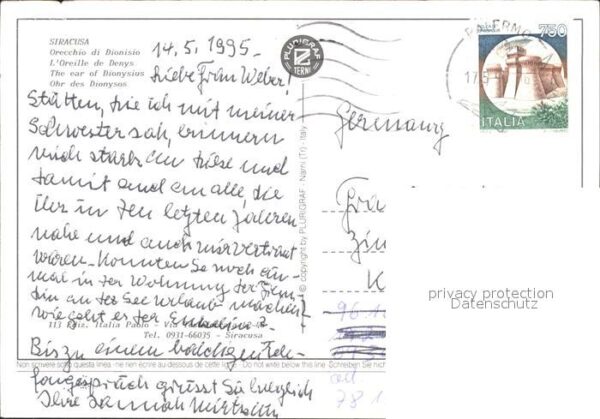 SIRACUSA
Orecchio di Dionisio
L'Oreille de Denys
The ear of Dionysius
Ohr des Dionysos
14.5.1995-
Liebe Frau Weber!
Stätten, die ich mit meiner
Schwester sah, erinnern
mich stark an diese und
damit auch an alle, die
Ihr in den letzten Jahren
nahe und auch mir vertraut
waren. Konnten Sie noch ein-
mal in der Wohnung der
an der See Urlaub machen?
Wie geht es der
113 Ediz. Italia Paolo - Via
Tel. 0931-66035 - Siracusa
Bis zu einem baldigen
grüsst Sie herzlich
Ihre Hannah
PLURIGRAF
TERNI
© copyright by PLURIGRAF - Narni (Tr) - Italy
Non scrivere sotto questa linea - ne rien écrire au dessous de cette ligne - Do not write below this line - Schreiben Sie nicht
Germany
PALERMO
17.5
750
ITALIA
privacy protection
Datenschutz
96.1
78 1